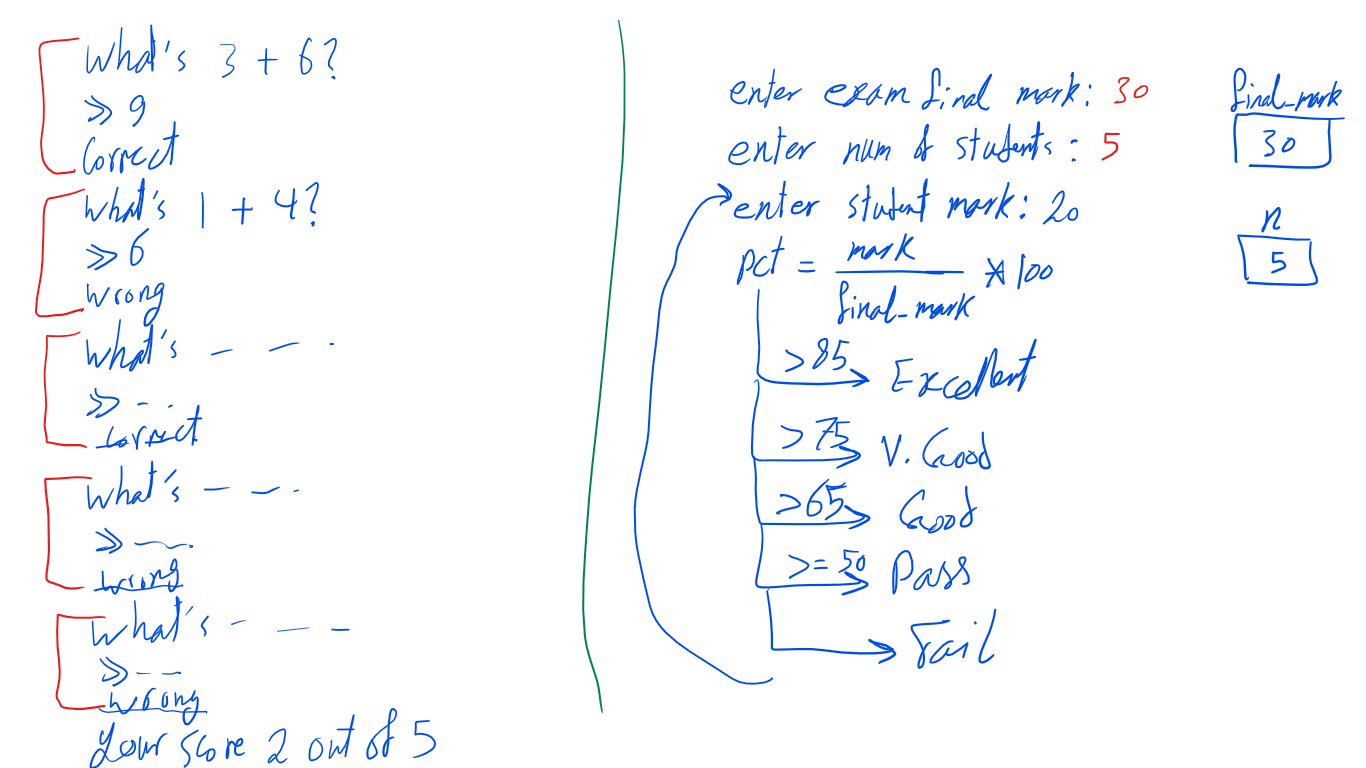 What's 3 + 6?
>> 9
Correct
What's 1 + 4?
>> 6
Wrong
What's — — .
>> - - .
Correct
What's — — .
>> — .
Wrong
What's - — —
>> - —
Wrong
Your score 2 out of 5
enter exam final mark: 30
enter num of students: 5
enter student mark: 20
pct = mark / final_mark * 100
>85 Excellent
>75 V. Good
>65 Good
>=50 Pass
Fail
final_mark
30
n
5